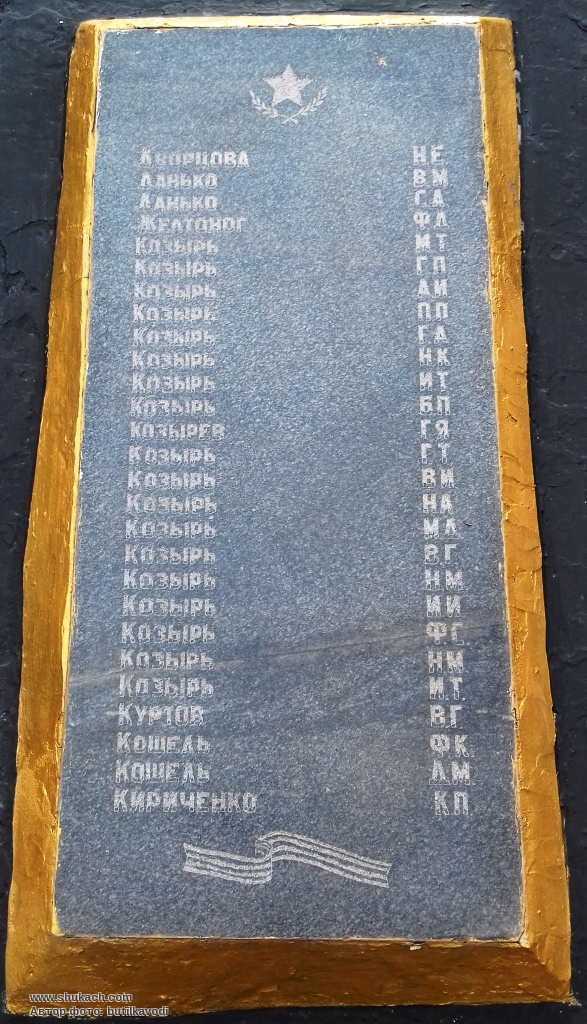 Дворцова НЕ
Данько ВМ
Данько ГА
Желтоног ФД
Козырь МТ
Козырь ГП
Козырь ДИ
Козырь ПП
Козырь ГД
Козырь НК
Козырь ИТ
Козырь БП
Козырев ГЯ
Козырь ГТ
Козырь ВИ
Козырь НА
Козырь МД
Козырь ВГ
Козырь НМ
Козырь ИИ
Козырь ФС
Козырь НМ
Козырь ИТ
Куртов ВГ
Кошель ФК
Кошель ЛМ
Кириченко КП
www.shukach.com
Автор фото: butilkavodi